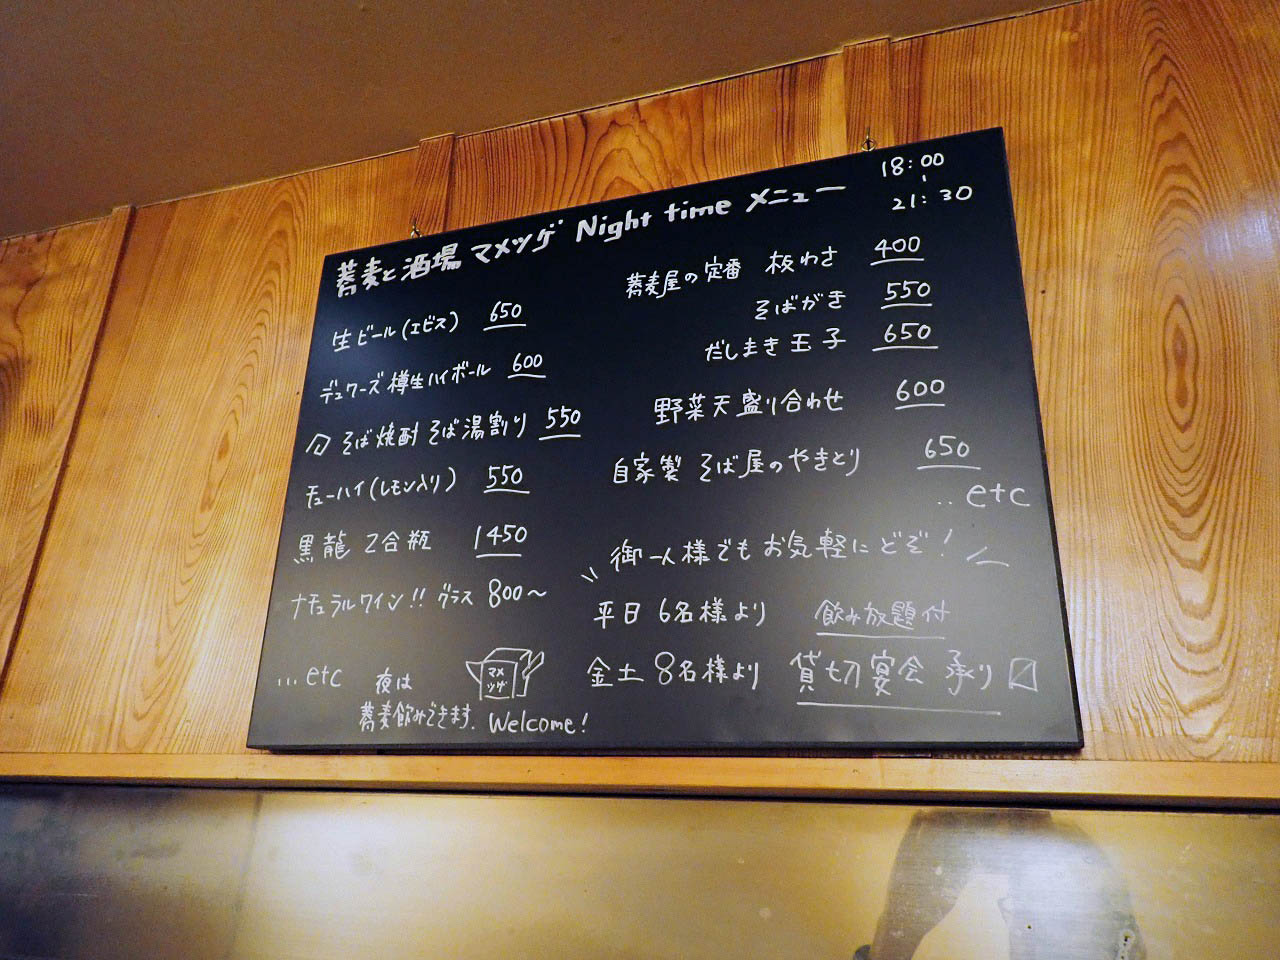 蕎麦と酒場 マメツゲ Night time メニュー
18:00
～
21:30
生ビール(エビス) 650
デュワーズ樽生ハイボール 600
そば焼酎 そば湯割り 550
チューハイ(レモン入り) 550
黒龍 2合瓶 1450
ナチュラルワイン!! グラス 800〜
...etc 夜は
蕎麦飲みできます. Welcome!
マメ
ツゲ
蕎麦屋の定番 板わさ 400
そばがき 550
だしまき玉子 650
野菜天盛り合わせ 600
自家製 そば屋のやきとり 650
..etc
御一人様でもお気軽にどぞ!
平日 6名様より 飲み放題付
金土 8名様より 貸切宴会 承り〼